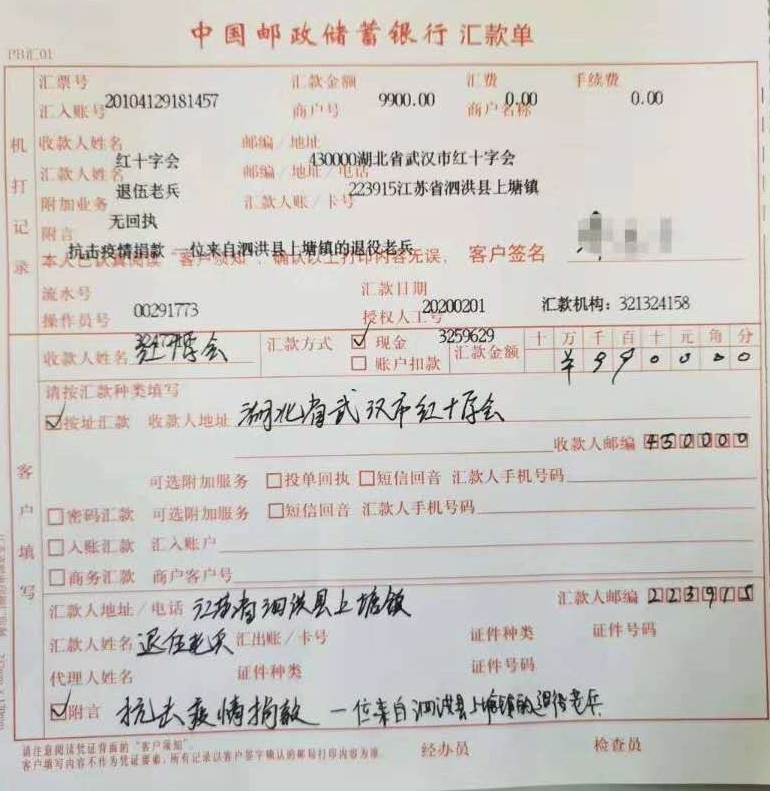 中国邮政储蓄银行 汇款单
PB汇01
机打记录
汇票号 汇款金额 汇费 手续费
20104129181457 9900.00 0.00 0.00
汇入账号 商户号 商户名称
收款人姓名 邮编/地址
红十字会 430000湖北省武汉市红十字会
汇款人姓名 邮编/地址/电话
退伍老兵 223915江苏省泗洪县上塘镇
附加业务 汇款人账/卡号
无回执
附言
抗击疫情捐款 一位来自泗洪县上塘镇的退役老兵
本人已认真阅读“客户须知”,确认以上打印内容无误, 客户签名
流水号 汇款日期
00291773 20200201 汇款机构:321324158
操作员号 授权人工号
3259629
客户填写
收款人姓名 红十字会 汇款方式 现金 汇款金额 十万千百十元角分
账户扣款 ¥990000
请按汇款种类填写
按址汇款 收款人地址 湖北省武汉市红十字会
收款人邮编 430000
可选附加服务 投单回执 短信回音 汇款人手机号码
密码汇款 可选附加服务 短信回音 汇款人手机号码
入账汇款 汇入账户
商务汇款 商户客户号
汇款人地址/电话 江苏省泗洪县上塘镇 汇款人邮编 223915
汇款人姓名 退伍老兵 汇出账/卡号 证件种类 证件号码
代理人姓名 证件种类 证件号码
附言 抗击疫情捐款 一位来自泗洪县上塘镇的退役老兵
请注意阅读凭证背面的“客户须知”。 经办员 检查员
客户填写内容不作为凭证要素,所有记录以客户签字确认的邮局打印内容为准。